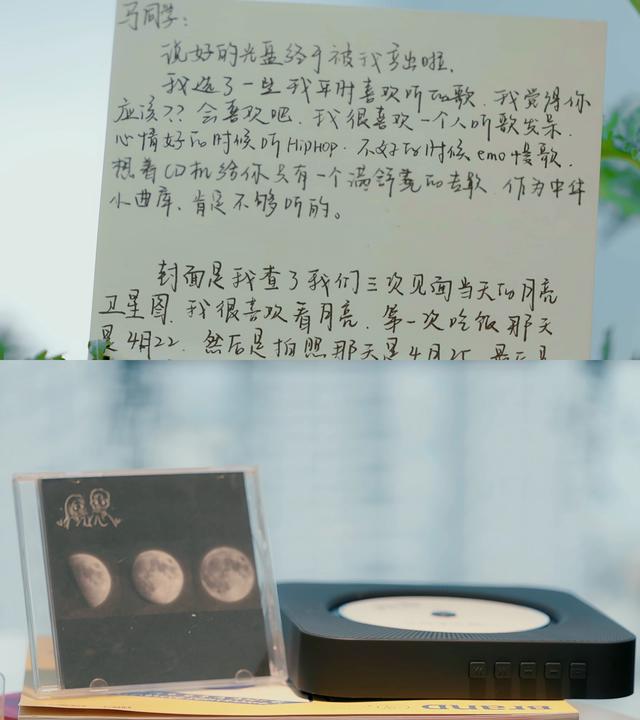 马同学：
说好的光盘终于被我弄出啦，
我选了一些我平时喜欢听的歌，我觉得你
应该？？会喜欢吧，我很喜欢一个人听歌发呆，
心情好的时候听HIPHOP，不好的时候emo慢歌，
想着CD机给你只有一个满舒克的专歌，作为中华
小曲库，肯定不够听的。
封面是我查了我们三次见面当天的月亮
卫星图，我很喜欢看月亮，第一次吃饭那天
是4月22，然后是拍照那天是4月25，最后是
BRAND